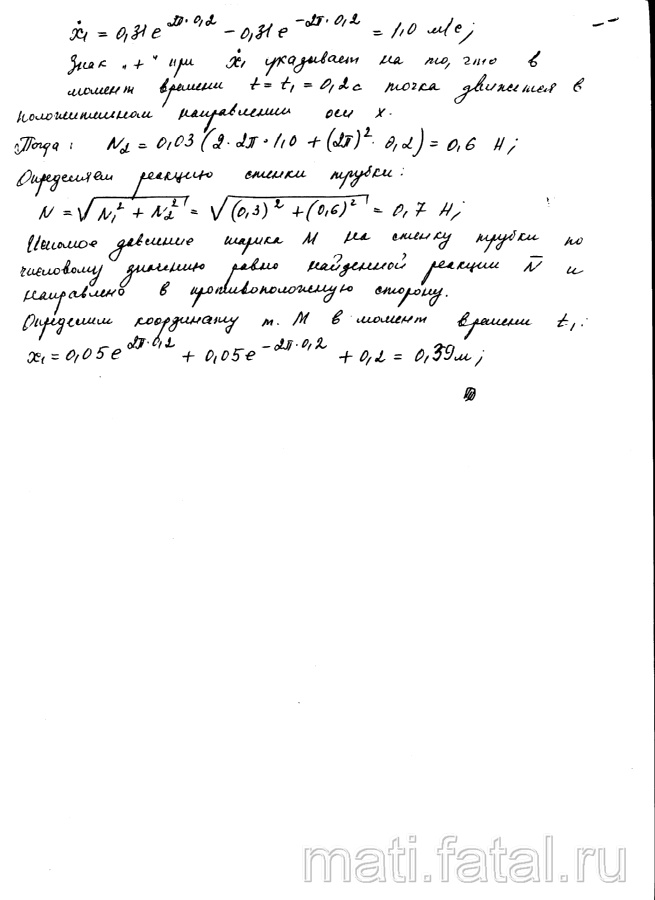 ẋ₁ = 0,31 e^{2π·0,2} − 0,31 e^{−2π·0,2} = 1,0 м/с;
Знак „+" при ẋ₁ указывает на то, что в
момент времени t = t₁ = 0,2 с точка движется в
положительном направлении оси x.
Тогда: N₂ = 0,03 (2·2π·1,0 + (2π)²·0,2) = 0,6 Н;
Определяем реакцию стенки трубки:
N = √(N₁² + N₂²) = √((0,3)² + (0,6)²) = 0,7 Н;
Искомое давление шарика М на стенку трубки по
числовому значению равно найденной реакции N̄ и
направлено в противоположную сторону.
Определим координату т. М в момент времени t₁:
x₁ = 0,05 e^{2π·0,2} + 0,05 e^{−2π·0,2} + 0,2 = 0,39 м;
mati.fatal.ru